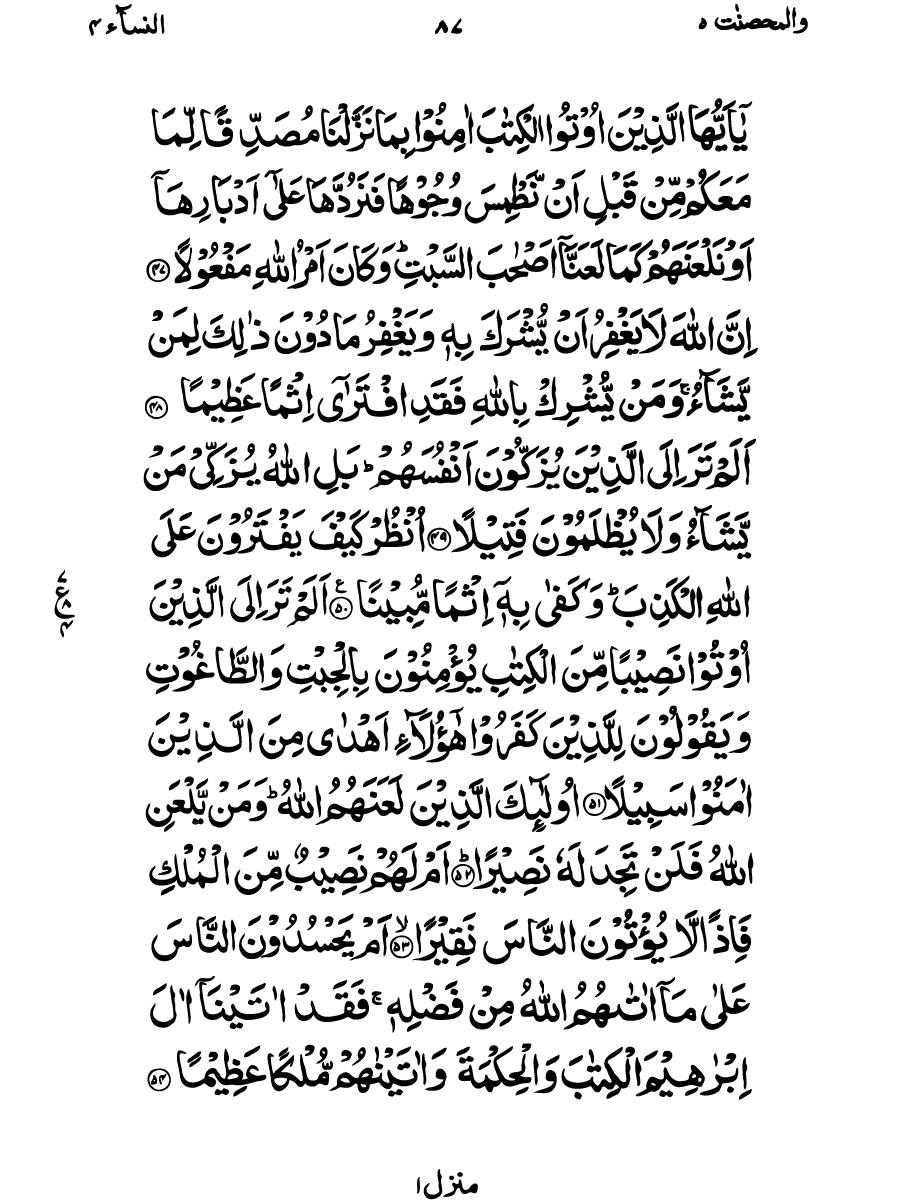 والمحصنٰت ٥ ٨٧ النسآء ٤
يٰۤاَيُّهَا الَّذِيْنَ اُوْتُوا الْكِتٰبَ اٰمِنُوْا بِمَا نَزَّلْنَا مُصَدِّقًا لِّمَا
مَعَكُمْ مِّنْ قَبْلِ اَنْ نَّطْمِسَ وُجُوْهًا فَنَرُدَّهَا عَلٰۤى اَدْبَارِهَاۤ
اَوْ نَلْعَنَهُمْ كَمَا لَعَنَّاۤ اَصْحٰبَ السَّبْتِ ؕ وَكَانَ اَمْرُ اللّٰهِ مَفْعُوْلًا ﴿۴۷﴾
اِنَّ اللّٰهَ لَا يَغْفِرُ اَنْ يُّشْرَكَ بِهٖ وَيَغْفِرُ مَا دُوْنَ ذٰلِكَ لِمَنْ
يَّشَآءُ ۚ وَمَنْ يُّشْرِكْ بِاللّٰهِ فَقَدِ افْتَرٰۤى اِثْمًا عَظِيْمًا ﴿۴۸﴾
اَلَمْ تَرَ اِلَى الَّذِيْنَ يُزَكُّوْنَ اَنْفُسَهُمْ ؕ بَلِ اللّٰهُ يُزَكِّىْ مَنْ
يَّشَآءُ وَلَا يُظْلَمُوْنَ فَتِيْلًا ﴿۴۹﴾ اُنْظُرْ كَيْفَ يَفْتَرُوْنَ عَلَى
اللّٰهِ الْكَذِبَ ؕ وَكَفٰى بِهٖۤ اِثْمًا مُّبِيْنًا ﴿۵۰﴾ اَلَمْ تَرَ اِلَى الَّذِيْنَ
٧ ع ٨ ٤
اُوْتُوْا نَصِيْبًا مِّنَ الْكِتٰبِ يُؤْمِنُوْنَ بِالْجِبْتِ وَالطَّاغُوْتِ
وَيَقُوْلُوْنَ لِلَّذِيْنَ كَفَرُوْا هٰۤؤُلَآءِ اَهْدٰى مِنَ الَّذِيْنَ
اٰمَنُوْا سَبِيْلًا ﴿۵۱﴾ اُولٰٓئِكَ الَّذِيْنَ لَعَنَهُمُ اللّٰهُ ؕ وَمَنْ يَّلْعَنِ
اللّٰهُ فَلَنْ تَجِدَ لَهٗ نَصِيْرًا ؕ ﴿۵۲﴾ اَمْ لَهُمْ نَصِيْبٌ مِّنَ الْمُلْكِ
فَاِذًا لَّا يُؤْتُوْنَ النَّاسَ نَقِيْرًا ۙ ﴿۵۳﴾ اَمْ يَحْسُدُوْنَ النَّاسَ
عَلٰى مَاۤ اٰتٰىهُمُ اللّٰهُ مِنْ فَضْلِهٖ ۚ فَقَدْ اٰتَيْنَاۤ اٰلَ
اِبْرٰهِيْمَ الْكِتٰبَ وَالْحِكْمَةَ وَاٰتَيْنٰهُمْ مُّلْكًا عَظِيْمًا ﴿۵۴﴾
منزل ١